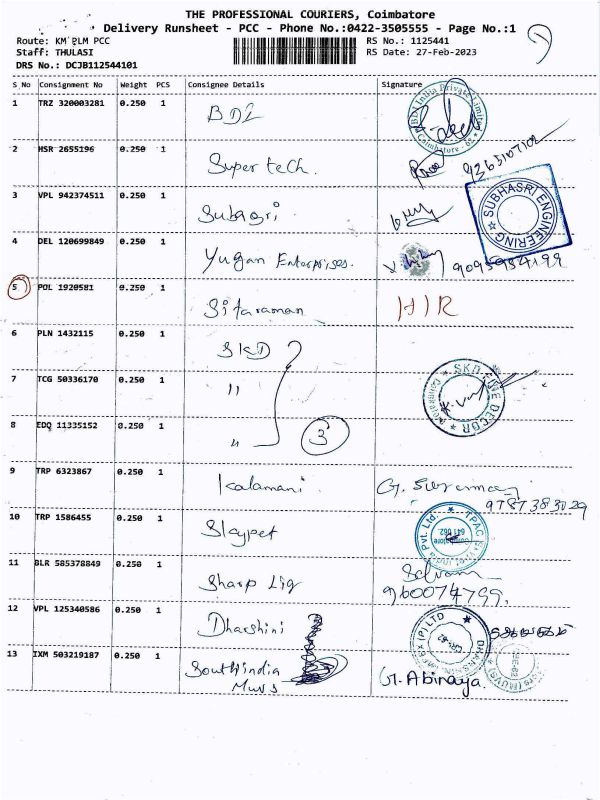 THE PROFESSIONAL COURIERS, Coimbatore
Delivery Runsheet - PCC - Phone No.:0422-3505555 - Page No.:1
Route: KM PLM PCC RS No.: 1125441
Staff: THULASI RS Date: 27-Feb-2023
DRS No.: DCJB112544101
S No Consignment No Weight PCS Consignee Details Signature
1 TRZ 320003281 0.250 1 BDI
2 HSR 2655196 0.250 1 Super tech.
SUBHASRI ENGINEERING
3 VPL 942374511 0.250 1
4 DEL 120699849 0.250 1 Yugan Enterprises.
5 POL 1920581 0.250 1 Sitaraman HIR
6 PLN 1432115 0.250 1 SKD
7 TCG 50336170 0.250 1 "
SKD FINE DECOR
8 EDQ 11335152 0.250 1 " 3
9 TRP 6323867 0.250 1 Kalamani
9787383029
10 TRP 1586455 0.250 1 Skypet
11 BLR 585378849 0.250 1 Sharp Lig Selvam
9600074799.
12 VPL 125340586 0.250 1 Dharshini
13 IXM 503219187 0.250 1 Southindia G. Abinaya.